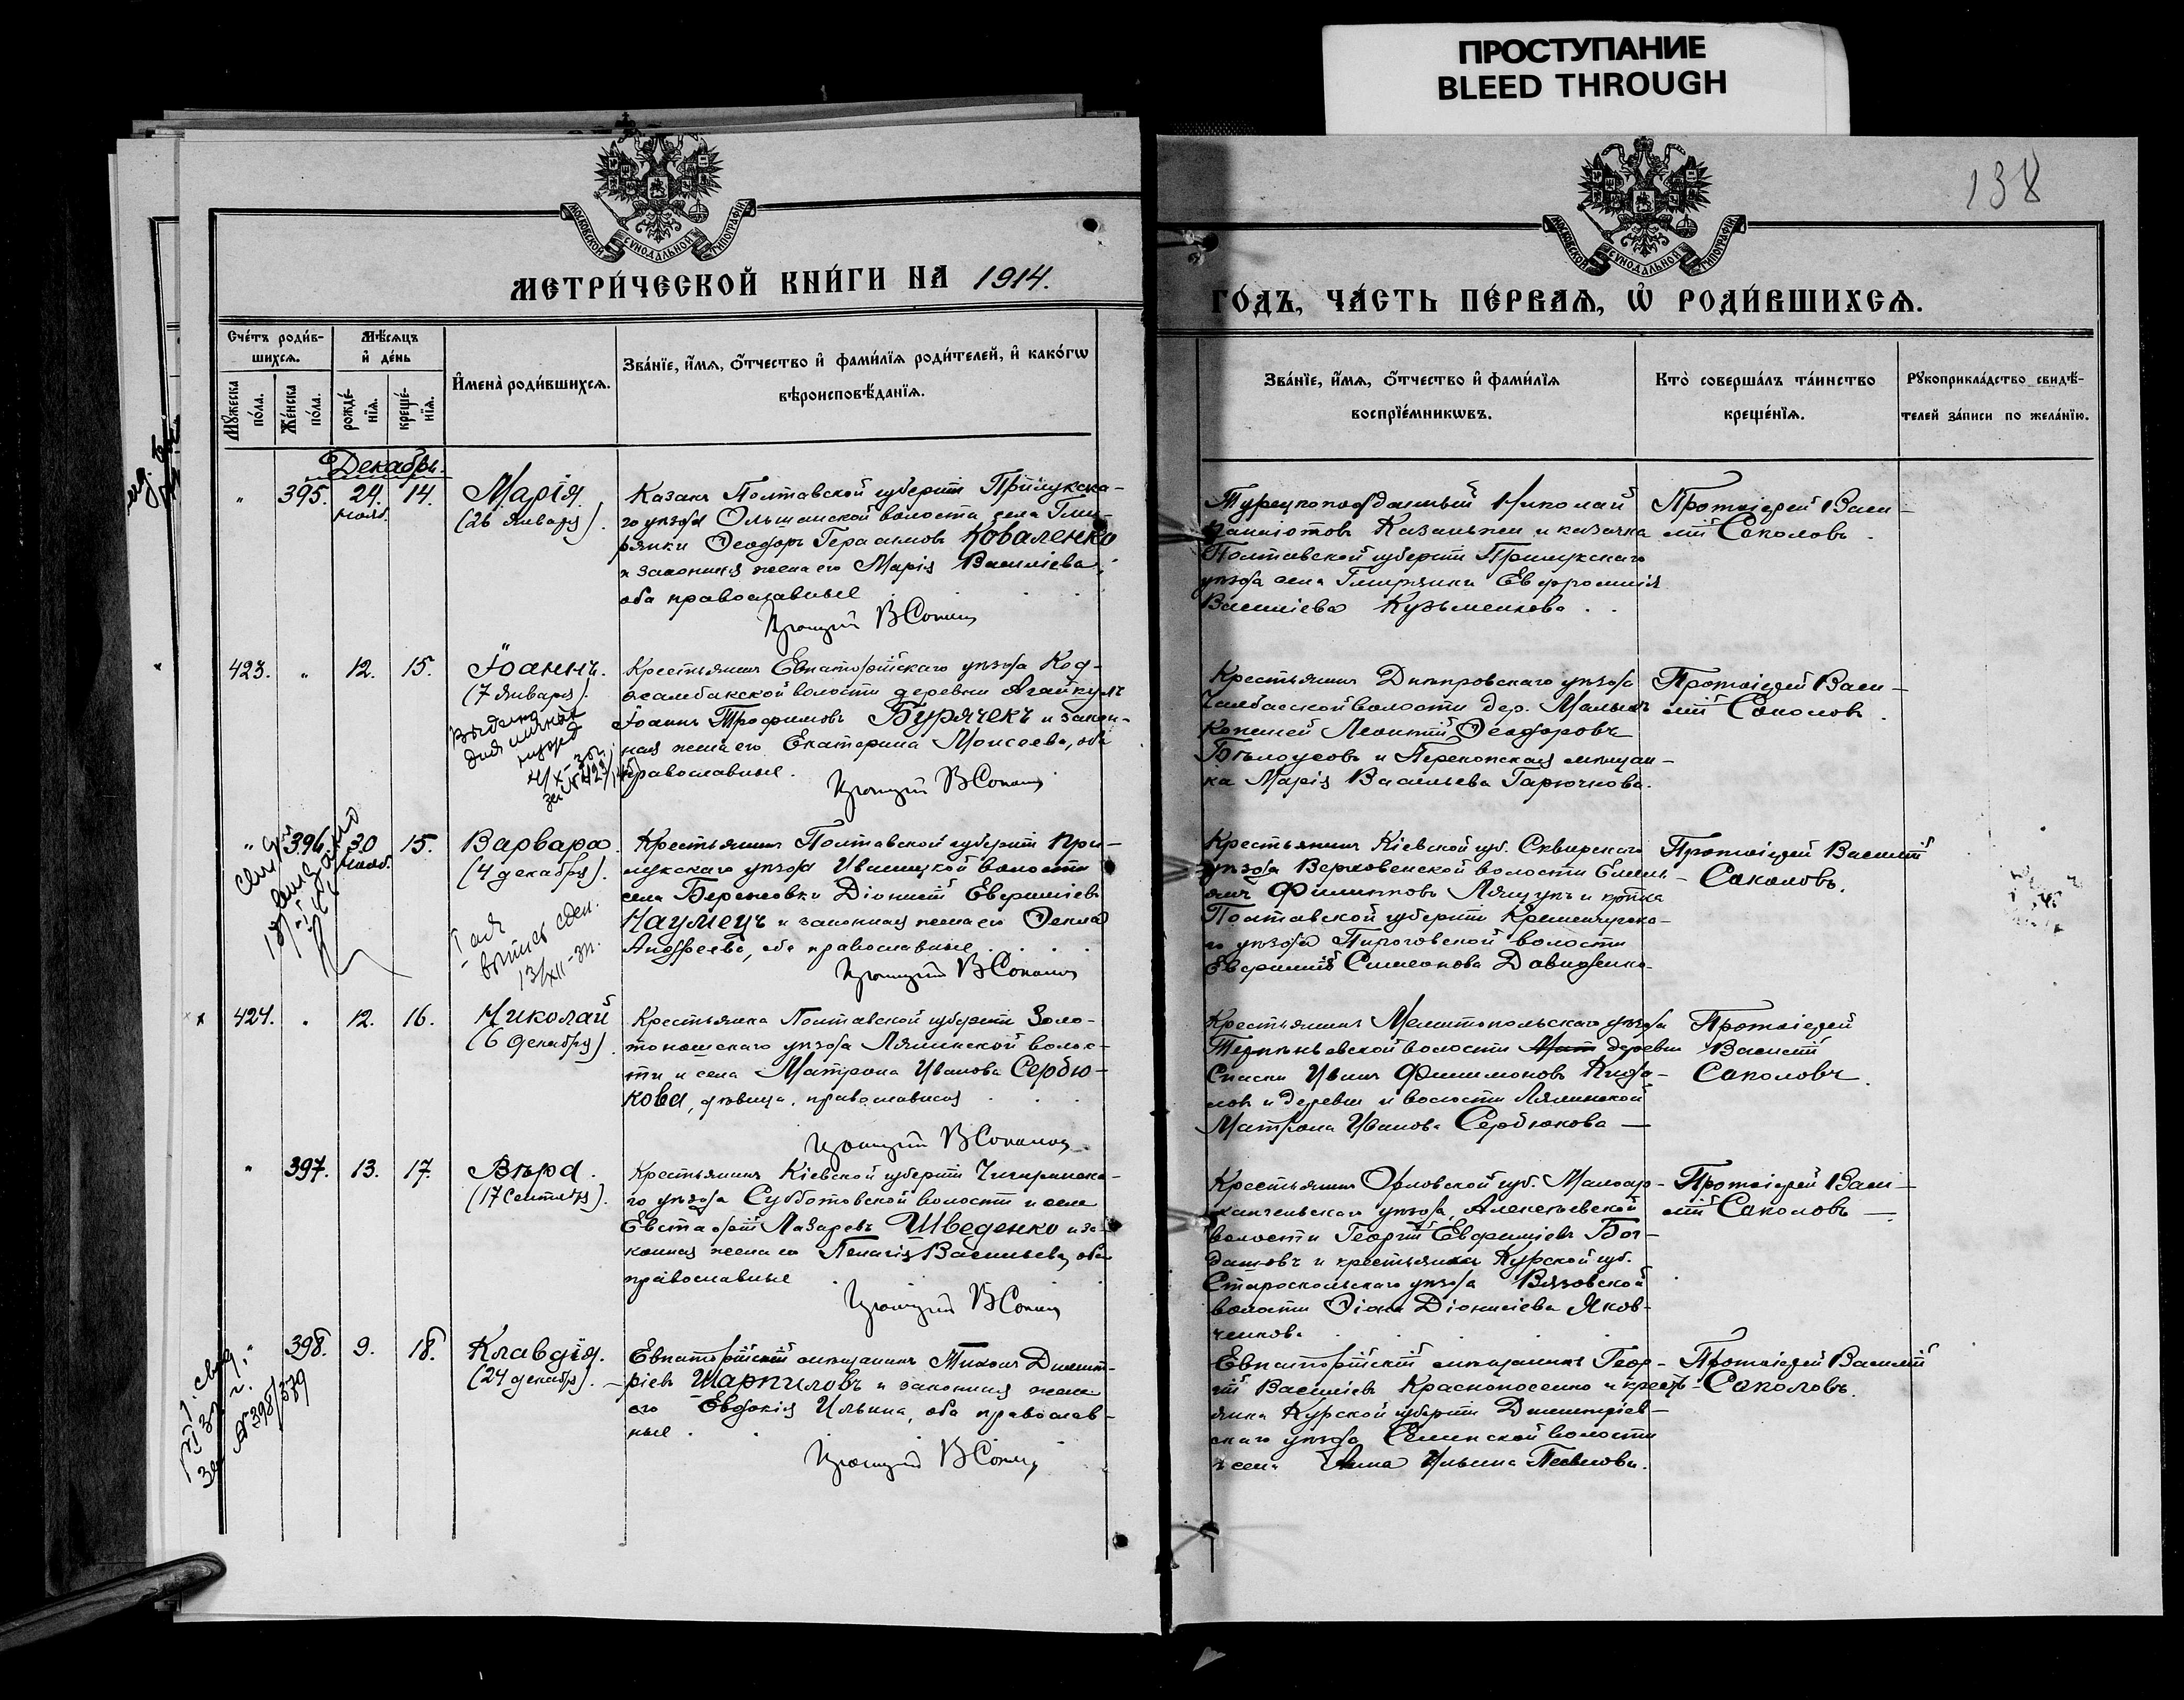 ПРОСТУПАНИЕ
BLEED THROUGH
138
МОСКОВСКОЙ СУНОДАЛЬНОЙ ТИПОГРАФІИ
МОСКОВСКОЙ СУНОДАЛЬНОЙ ТИПОГРАФІИ
МЕТРИ́ЧЕСКОЙ КНИ́ГИ НА 1914.
ГО́ДЪ, ЧА́СТЬ ПЕ́РВАѦ, Ѡ҆ РОДИ́ВШИХСѦ.
Сче́тъ роди́в-
шихсѧ.
Мѣ́сѧцъ
и҆ де́нь
Мꙋ́жеска по́ла.
Же́нска по́ла.
рожде́-нїѧ.
креще́-нїѧ.
И҆мена̀ роди́вшихсѧ.
Зва́нїе, и҆́мѧ, ѻ҆́тчество и҆ фами́лїѧ роди́телей, и҆ како́гѡ
вѣроисповѣ́данїѧ.
Зва́нїе, и҆́мѧ, ѻ҆́тчество и҆ фами́лїѧ
воспрїе́мникѡвъ.
Кто̀ соверша́лъ та́инство
креще́нїѧ.
Рꙋкоприкла́дство свидѣ́-
телей за́писи по жела́нїю.
Декабрь.
" 395. 24. нояб. 14. Марія.
(26 Января).
Казакъ Полтавской губерніи Прилукска-
го уѣзда Ольшанской волости села Гми-
рянки Ѳеодоръ Герасимовъ Коваленко
и законная жена его Марія Василіева,
оба православные
Протоіерей В Соколовъ
Турецкоподданный Николай
Казанжи и казачка
Полтавской губерніи Прилукскаго
уѣзда села Гмирянки Евфросинія
Василіева Кузьменкова.
Протоіерей Васи-
лій Соколовъ.
423. " 12. 15. Іоаннъ.
(7 Января).
Выдана
для
Крестьянинъ Евпаторійскаго уѣзда Код-
жамбакской волости деревни Агайкуль
Іоаннъ Трофимовъ Бурячекъ и закон-
ная жена его Екатерина Моисеева, оба
православные.
Протоіерей В Соколовъ
Крестьянинъ Днѣпровскаго уѣзда
Чалбасской волости дер. Малыхъ
Копаней Леонтій Ѳеодоровъ
Бѣлоусовъ и Перекопская мѣщан-
ка Марія Васильева Гарючкова.
Протоіерей Васи-
лій Соколовъ.
" 396. 30 нояб. 15. Варвара.
(4 декабря).
выпись
13/XII
Крестьянинъ Полтавской губерніи При-
лукскаго уѣзда Иваницкой волости
села Бережовки Діонисій Евфиміевъ
Наумецъ и законная жена его Ѳекла
Андреева, оба православные.
Протоіерей В Соколовъ
Крестьянинъ Кіевской губ. Сквирскаго
уѣзда Верховенской волости Емель-
янъ Филипповъ Лящукъ и кр-тка
Полтавской губерніи Кременчугска-
го уѣзда Пироговской волости
Евфимія Симеонова Давиденко
Протоіерей Василій
Соколовъ.
424. " 12. 16. Николай
(6 декабря).
Крестьянка Полтавской губерніи Золо-
тоношскаго уѣзда Лялинской волос-
ти и села Матрона Иванова Сербю-
кова, дѣвица, православная
Протоіерей В Соколовъ
Крестьянинъ Мелитопольскаго уѣзда
волости деревни
Спаски Иванъ Филимоновъ
и деревни и волости Лялинской
Матрона Иванова Сербюкова —
Протоіерей
Василій
Соколовъ.
" 397. 13. 17. Вѣра.
(17 Сентября).
Крестьянинъ Кіевской губерніи Чигиринска-
го уѣзда Субботовской волости и села
Евстафій Лазаревъ Шведенко и за-
конная жена его Пелагія Васильева, оба
православные
Протоіерей В Соколовъ
Крестьянинъ Орловской губ. Малоар-
хангельскаго уѣзда, Алексѣевской
волости Георгій Евфиміевъ Бог-
дановъ и крестьянка Курской губ.
Старооскольскаго уѣзда Вязовской
волости Діонисіева Яков-
ченкова.
Протоіерей Васи-
лій Соколовъ —
" 398. 9. 18. Клавдія.
(24 декабря).
№ 398/379
Евпаторійскій мѣщанинъ Тихонъ Димит-
ріевъ Шарпиловъ и законная жена
его Евдокія Ильина, оба православ-
ные.
Протоіерей В Соколовъ
Евпаторійскій мѣщанинъ Геор-
гій Василіевъ Красноносенко и кресть-
янка Курской губерніи Димитріев-
скаго уѣзда Селинской волости
и села Анна Ильина
Протоіерей Василій
Соколовъ.